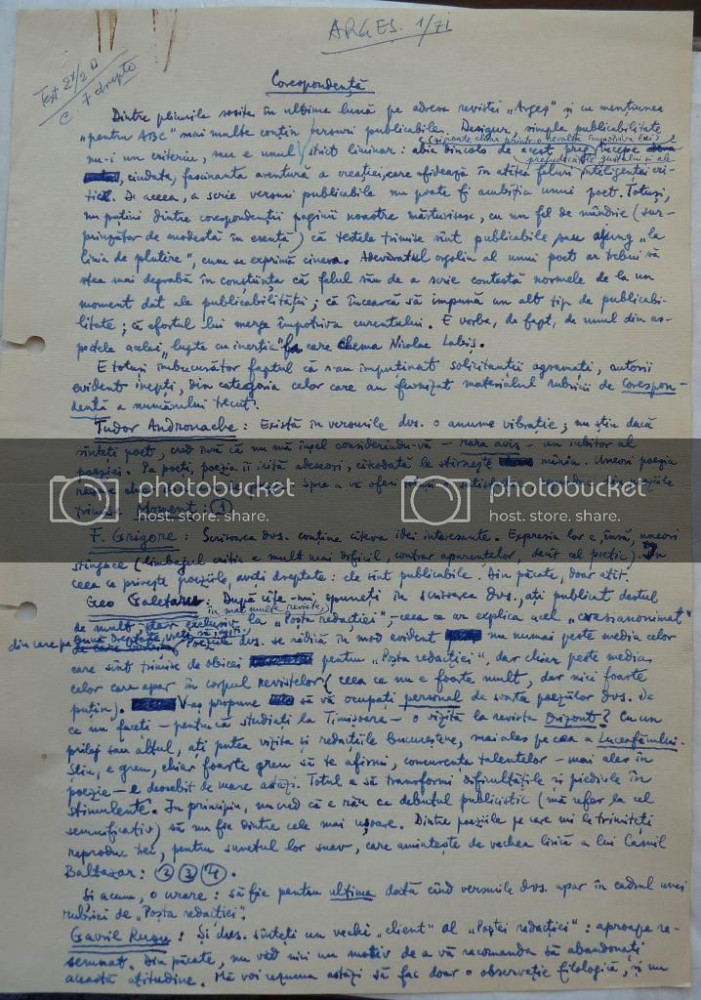 ARGEŞ. 1/71
Text 2 1/2
C. 7 drepte
Corespondenţă
Dintre plicurile sosite în ultima lună pe adresa revistei „Argeş” şi cu menţiunea
„pentru ABC” mai multe conţin versuri publicabile. Desigur, simpla publicabilitate
nu-i un criteriu, sau e unul strict liminar: abia dincolo de acest prag începe
prejudecăţile gustului şi ale
ciudata, fascinanta aventură a creaţiei, care sfidează în atîtea feluri inteligenţa cri-
tică. De aceea, a scrie versuri publicabile nu poate fi ambiţia unui poet. Totuşi,
nu puţini dintre corespondenţii paginii noastre mărturisesc, cu un fel de mîndrie (sur-
prinzător de modestă în esenţă) că textele trimise sînt publicabile sau ajung „la
linia de plutire”, cum se exprimă cineva. Adevăratul orgoliu al unui poet ar trebui să
stea mai degrabă în conştiinţa că felul său de a scrie contestă normele de la un
moment dat ale publicabilităţii; că încearcă să impună un alt tip de publicabi-
litate; că efortul lui merge împotriva curentului. E vorba, de fapt, de unul din as-
pectele acelei „lupte cu inerţia” la care chema Nicolae Labiş.
E totuşi îmbucurător faptul că s-au împuţinat solicitanţii agramaţi, autorii
evident inepţi, din categoria celor care au furnizat materialul rubricii de Corespon-
denţă a numărului trecut.
Tudor Andronache: Există în versurile dvs. o anume vibraţie; nu ştiu dacă
sînteţi poet, cred însă că nu mă înşel considerîndu-vă – rara avis – un iubitor al
poeziei. Pe poeţi, poezia îi irită adeseori, cîteodată le stîrneşte mînia. Uneori poezia
Moment: 1
photobucket
host. store. share.
photobucket
host. store. share.
F. Grigore: Scrisoarea dvs. conţine cîteva idei interesante. Expresia lor e, însă, uneori
stîngace (limbajul critic e mult mai dificil, contrar aparenţelor, decît cel poetic). În
ceea ce priveşte poeziile, aveţi dreptate: ele sînt publicabile. Din păcate, doar atît.
Geo Galetaru: După cîte-mi spuneţi în scrisoarea dvs., aţi publicat destul
în mai multe reviste,
de mult, dar exclusiv la „Poşta redacţiei”, – ceea ce ar explica acel „cvasianonimat”
din care pe bună dreptate, vreţi să ieşiţi. Poeziile dvs. se ridică în mod evident nu numai peste media celor
care sînt trimise de obicei pentru „Poşta redacţiei”, dar chiar peste media
celor care apar în corpul revistelor (ceea ce nu e foarte mult, dar nici foarte
puţin). V-aş propune să vă ocupaţi personal de soarta poeziilor dvs. De
ce nu faceţi – pentru că studiaţi la Timişoara – o vizită la revista Orizont? Cu un
prilej sau altul, aţi putea vizita şi redacţiile bucureştene, mai ales pe cea a Luceafărului.
Ştiu, e greu, chiar foarte greu să te afirmi, concurenţa talentelor – mai ales în
poezie – e deosebit de mare astăzi. Totul e să transformi dificultăţile şi piedicile în
stimulente. În principiu, nu cred că e rău ca debutul publicistic (mă refer la cel
semnificativ) să nu fie dintre cele mai uşoare. Dintre poeziile pe care mi le trimiteţi
reproduc trei, pentru sunetul lor suav, care aminteşte de vechea lirică a lui Camil
Baltazar: 2 3 4.
Şi acum, o urare: să fie pentru ultima dată cînd versurile dvs. apar în cadrul unei
rubrici de „Poşta redacţiei”.
Gavril Rugu: Şi dvs. sînteţi un vechi „client” al „Poştei redacţiei”: aproape re-
semnat. Din păcate, nu văd nici un motiv de a vă recomanda să abandonaţi
această atitudine. Mă voi rezuma astăzi să fac doar o observaţie filologică, şi nu